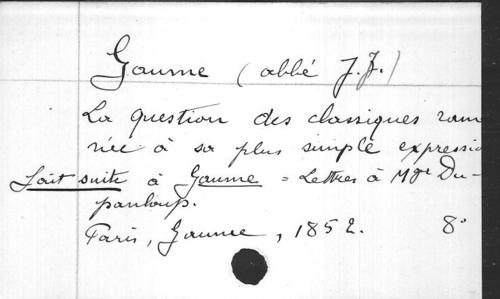 Gaume (abbé J.J.)
La question des classiques rame
née à sa plus simple expressio
Fait suite à Gaume = Lettres à Mgr Du-
panloup.
Paris, Gaume, 1852. 8°